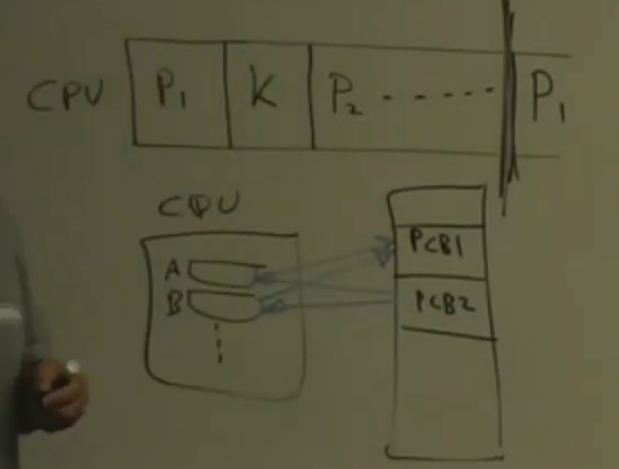 CPU P1 K P2 ...... P1
CPU
A
B
PCB1
PCB2